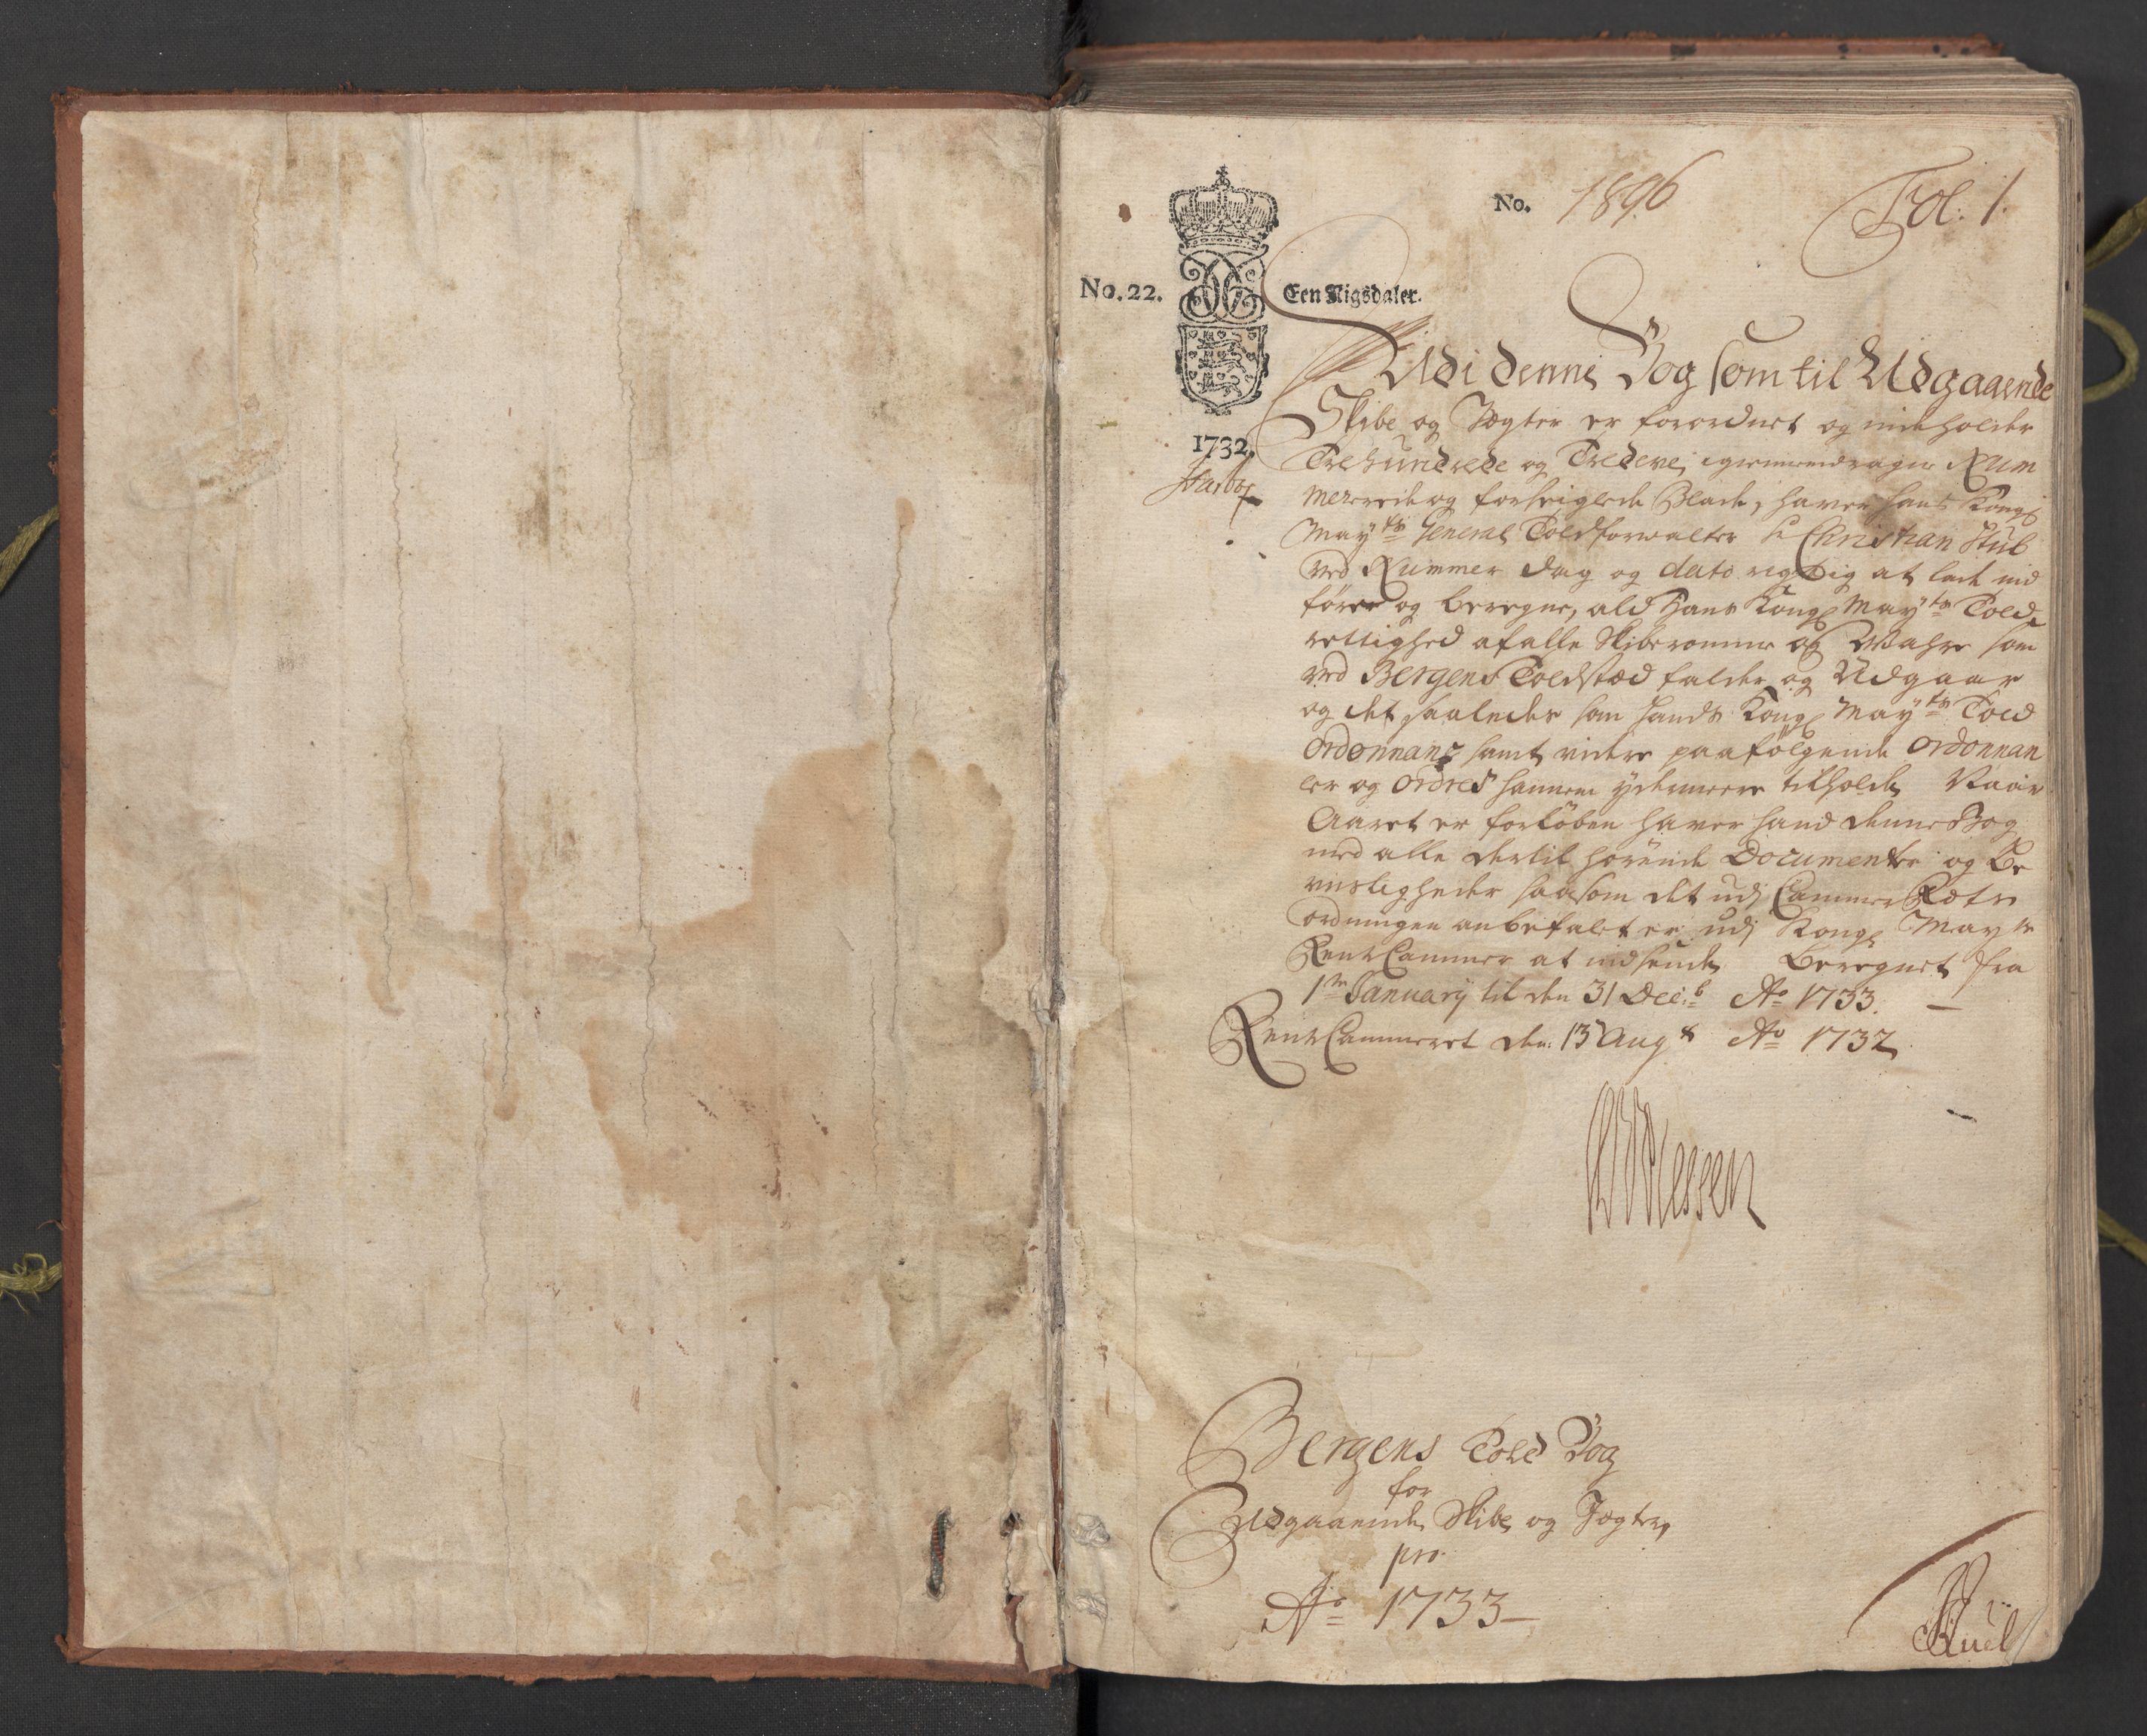 No. 1896
Fol: 1.
No. 22.
Een Rigsdaler.
1732.
Udi denne Bog som til Udgaaende
Skibe og Jægter er forordnet og indeholder
Trehundrede og Tredeve, igiennemdragne Num
mererede og forseiglede Blade, haver hans Kongl
Mayts General Toldforvalter Hr Christian Stub
ved Nummer dag og dato rigtig at lade ind
føre og beregne, ald Hans Kongl Mayts Told
rettighed af alle Skiberomme og Wahre som
ved Bergens Toldsted falder og Udgaar
og det saaledes som hands Kongl Mayts Told
Ordonnantz samt videre paafølgende Ordonnan
cer og Ordres hannem ydermeere tilholder Naar
Aaret er forløben haver hand denne Bog
med alle dertil hørende Documenter og Be
viisligheder saasom det udj Cammer Rætts
ordningen anbefalet er udj Kongl Mayts
RenteCammer at indsende, Beregnet fra
1te January til den 31 Decb Ao 1733.
RenteCammeret den: 13 Augt Ao 1732
CAvPlessen
Bergens Told Bog
for
Udgaaende Skibe og Jægter
pro
Ao 1733